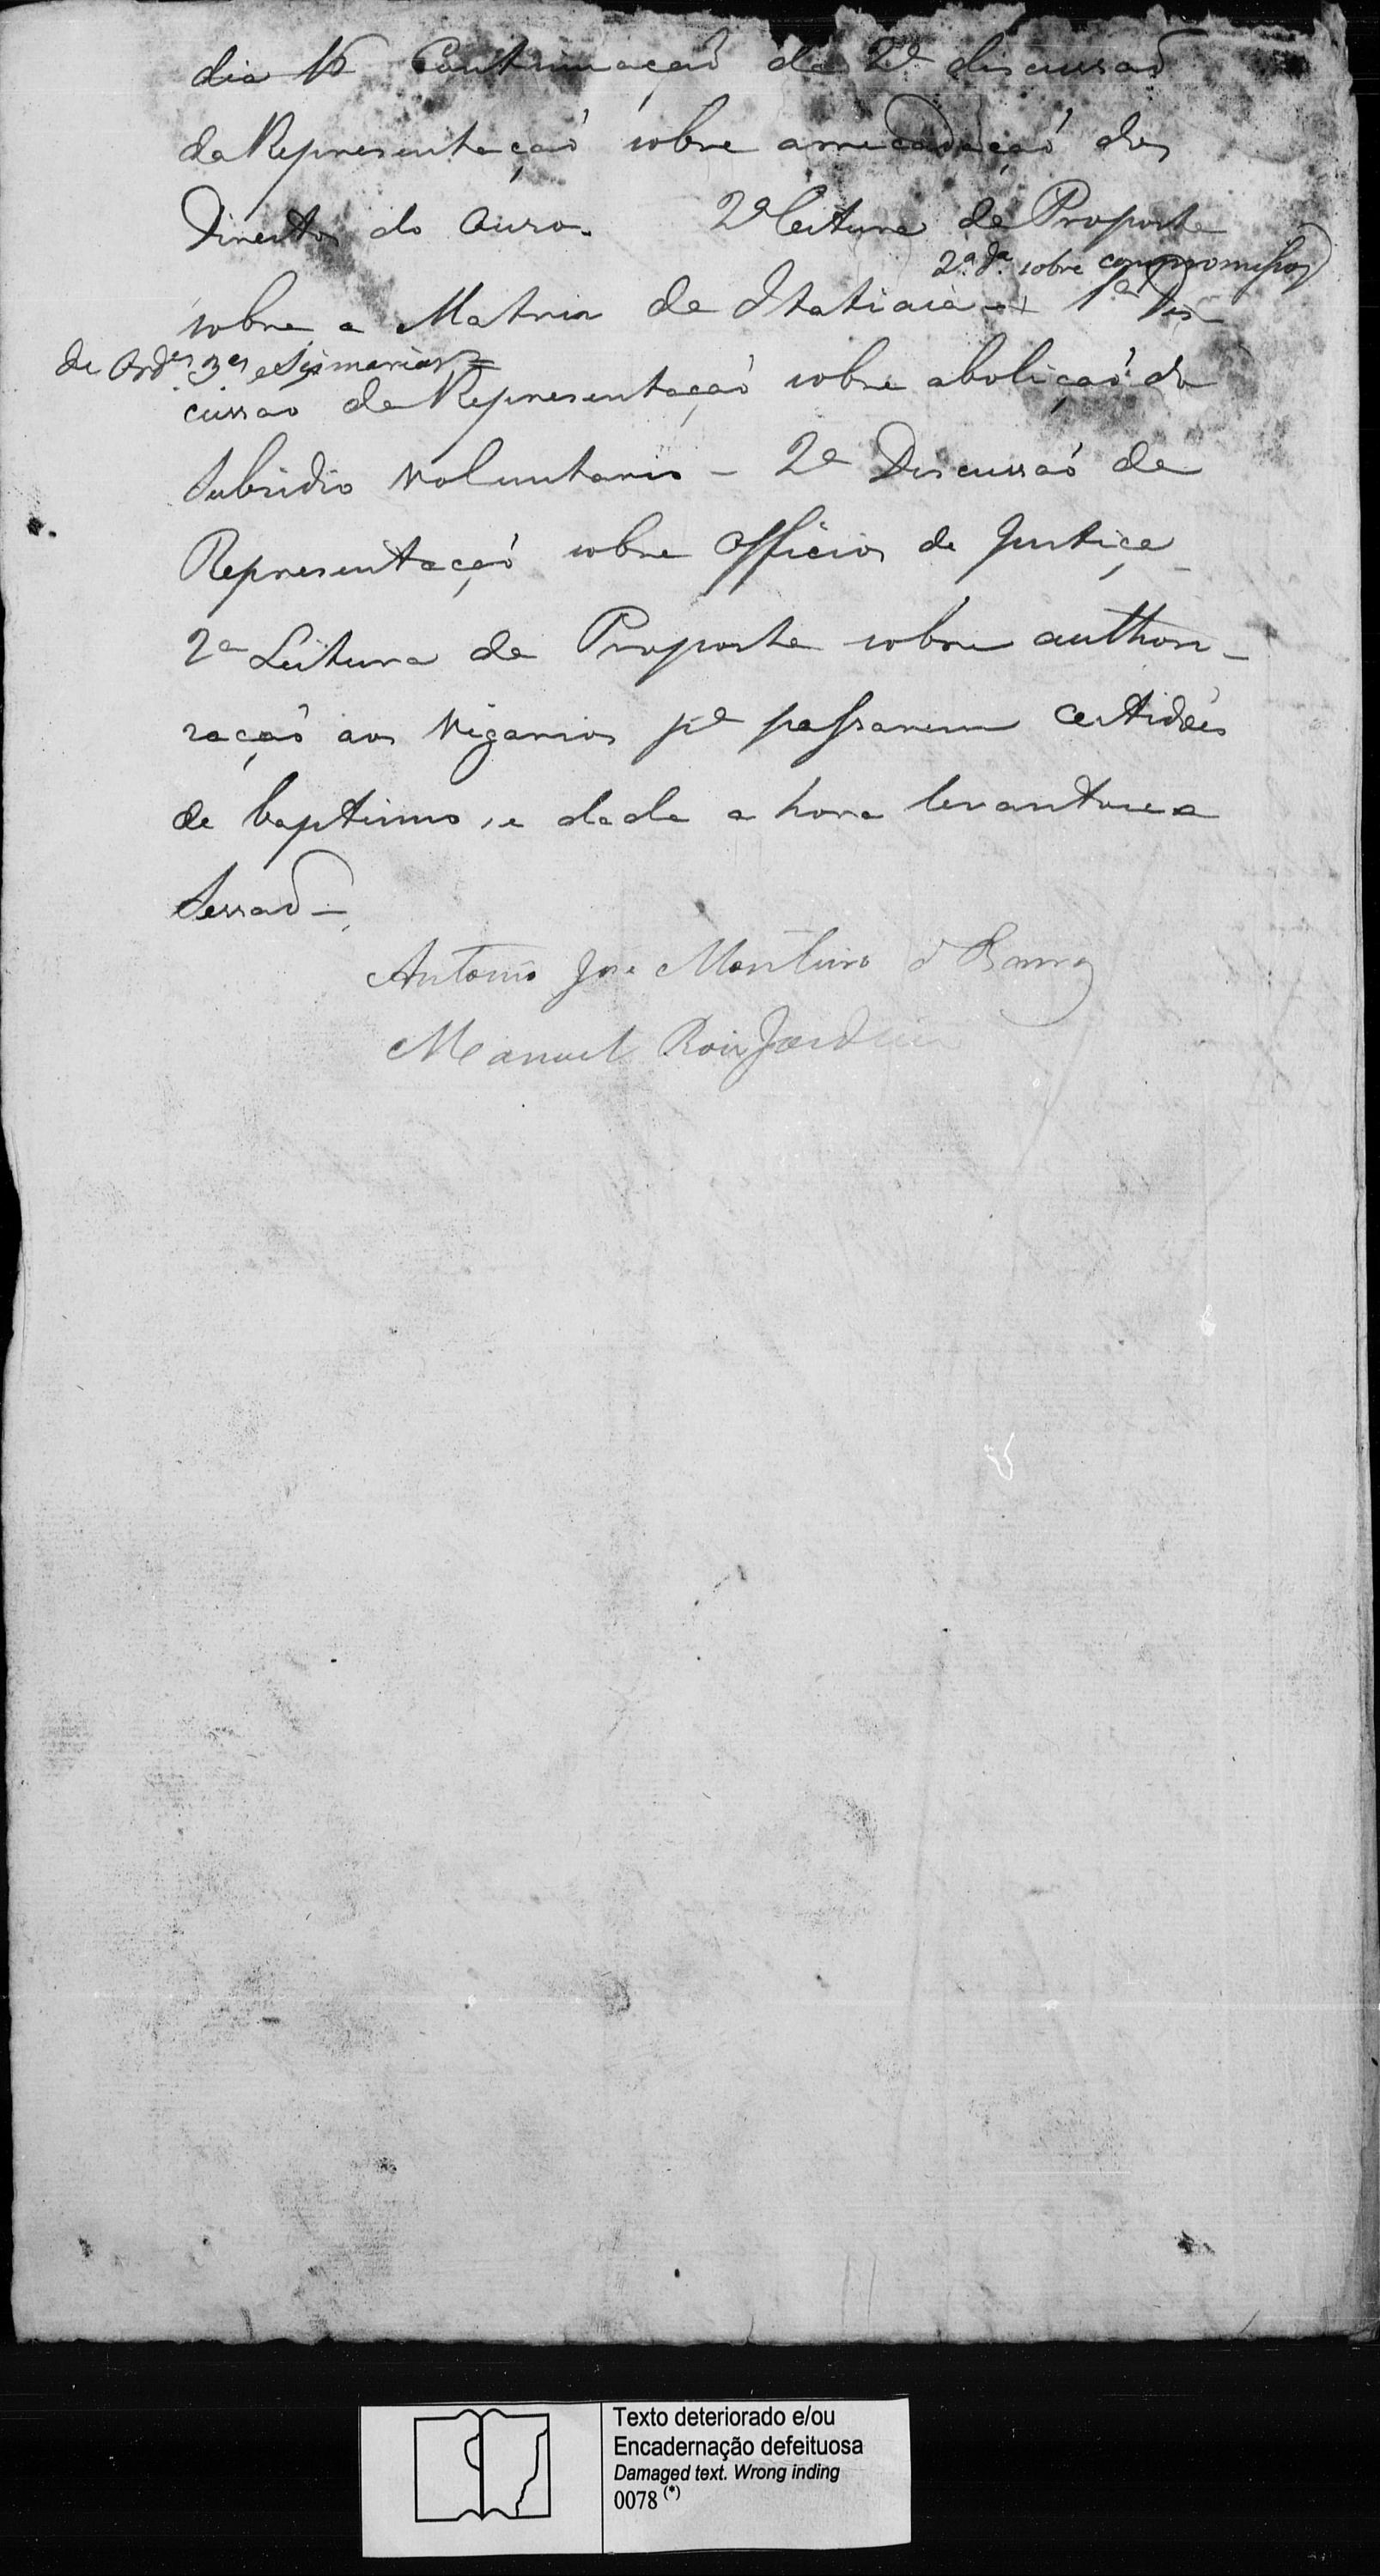 dia 16 Continuação da 2ª discussaõ
da Representaçaõ sobre arrecadaçaõ dos
Direitos do Ouro. 2ª leitura da Proposta
2.ª d.ª sobre compromissos
sobre a Matriz de Itatiaia -+ 1ª Dis-
de Ord.es 3.as e Sismarias =
cussaõ da Representaçaõ sobre aboliçaõ do
Subsidio voluntario - 2ª Discussaõ da
Representaçaõ sobre Officios de Justiça -
2ª Leitura da Proposta sobre authori-
zaçaõ aos Vigarios pª passarem Certidões
de baptismo, e dada a hora levantou-se a
Sessaõ -
Antonio Jose Monteiro d Barros
Manuel Roiz Jardim
Texto deteriorado e/ou
Encadernação defeituosa
Damaged text. Wrong inding
0078 (*)